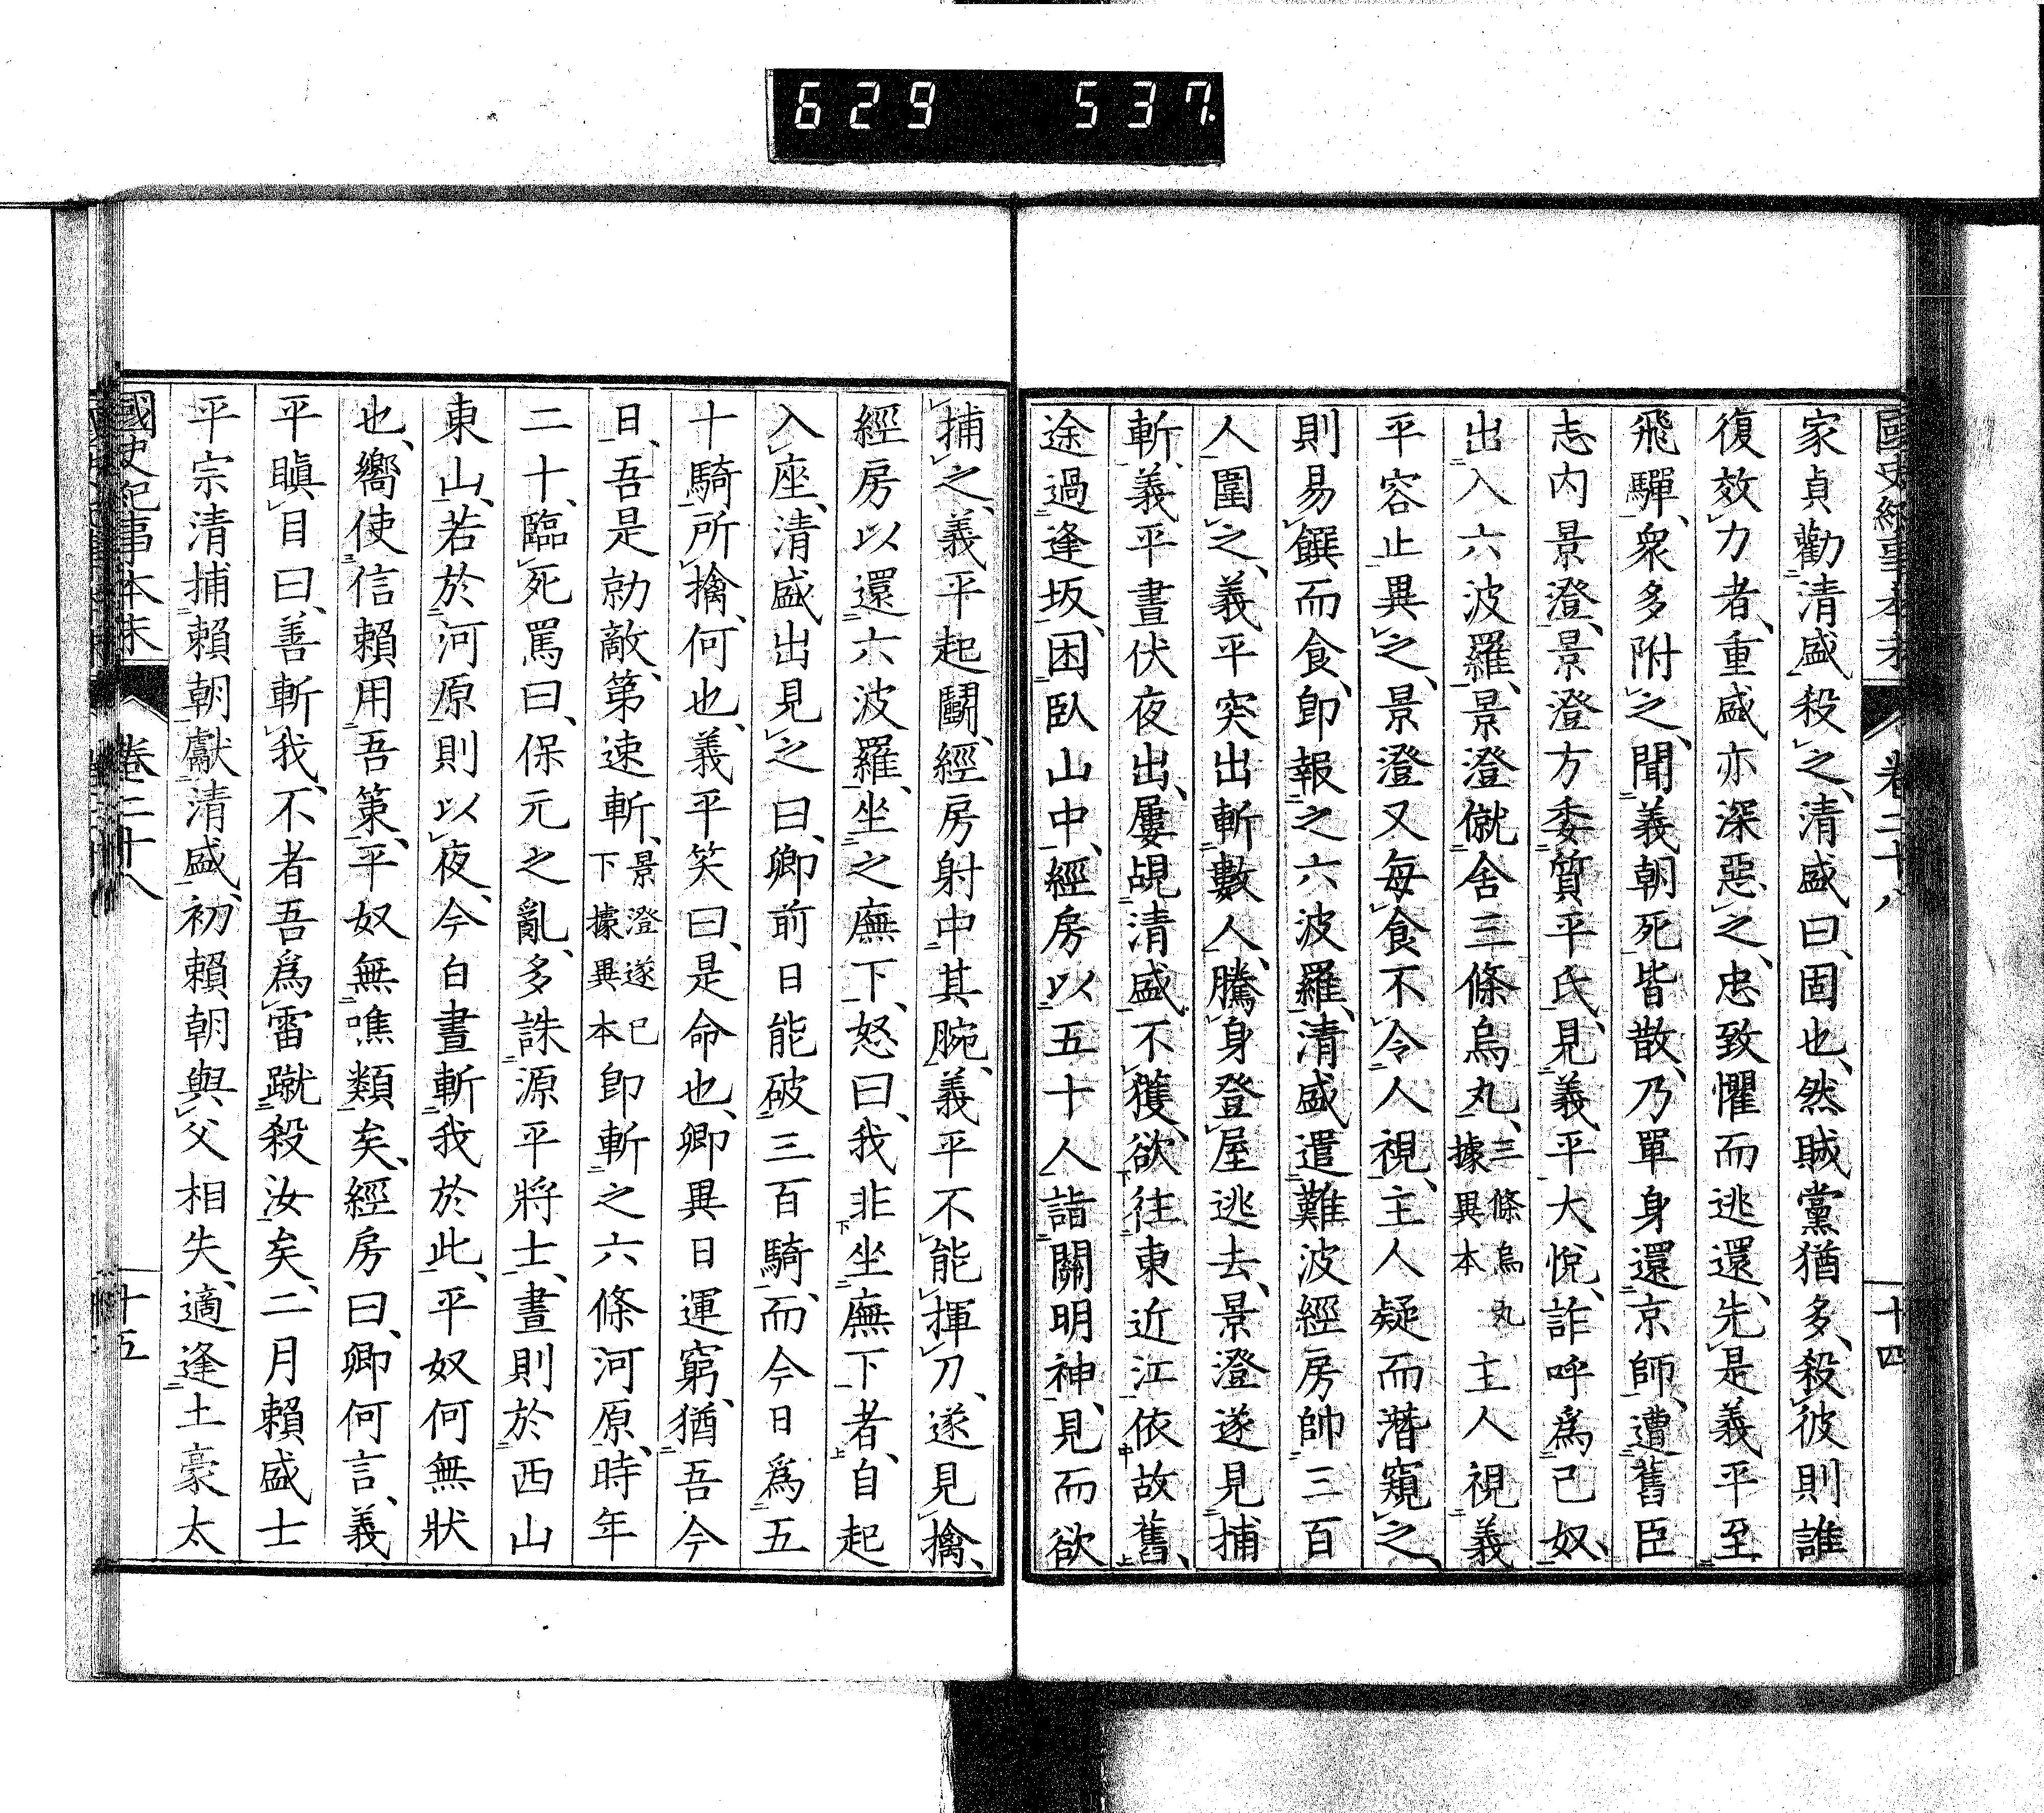 629 537.
國史紀事本末 卷二十八 十四
家貞勸清盛殺之、清盛曰、固也、然賊黨猶多、殺彼則誰
復效力者、重盛亦深惡之、忠致懼而逃還、先是義平至
飛驒、衆多附之、聞義朝死、皆散、乃單身還京師、遭舊臣
志內景澄、景澄方委質平氏、見義平大悅、詐呼爲己奴、
出入六波羅、景澄僦舍三條烏丸、三條烏丸據異本主人視義
平容止異之、景澄又每食不令人視、主人疑而潛窺之、
則易饌而食、卽報之六波羅、清盛遣難波經房帥三百
人圍之、義平突出斬數人、騰身登屋逃去、景澄遂見捕
斬、義平晝伏夜出、屢覘清盛、不獲、欲往東近江依故舊、
途過逢坂、困臥山中、經房以五十人詣關明神、見而欲
捕之、義平起鬭、經房射中其腕、義平不能揮刀、遂見擒、
經房以還六波羅、坐之廡下、怒曰、我非坐廡下者、自起
入座、清盛出見之曰、卿前日能破三百騎、而今日爲五
十騎所擒、何也、義平笑曰、是命也、卿異日運窮、猶吾今
日、吾是勍敵、第速斬、景澄遂已下據異本卽斬之六條河原、時年
二十、臨死罵曰、保元之亂、多誅源平將士、晝則於西山
東山、若於河原則以夜、今白晝斬我於此、平奴何無狀
也、嚮使信賴用吾策、平奴無噍類矣、經房曰、卿何言、義
平瞋目曰、善斬我、不者吾爲雷蹴殺汝矣、二月賴盛士
平宗清捕賴朝獻清盛、初賴朝與父相失、適逢土豪太
國史紀事本末 卷二十八 十五